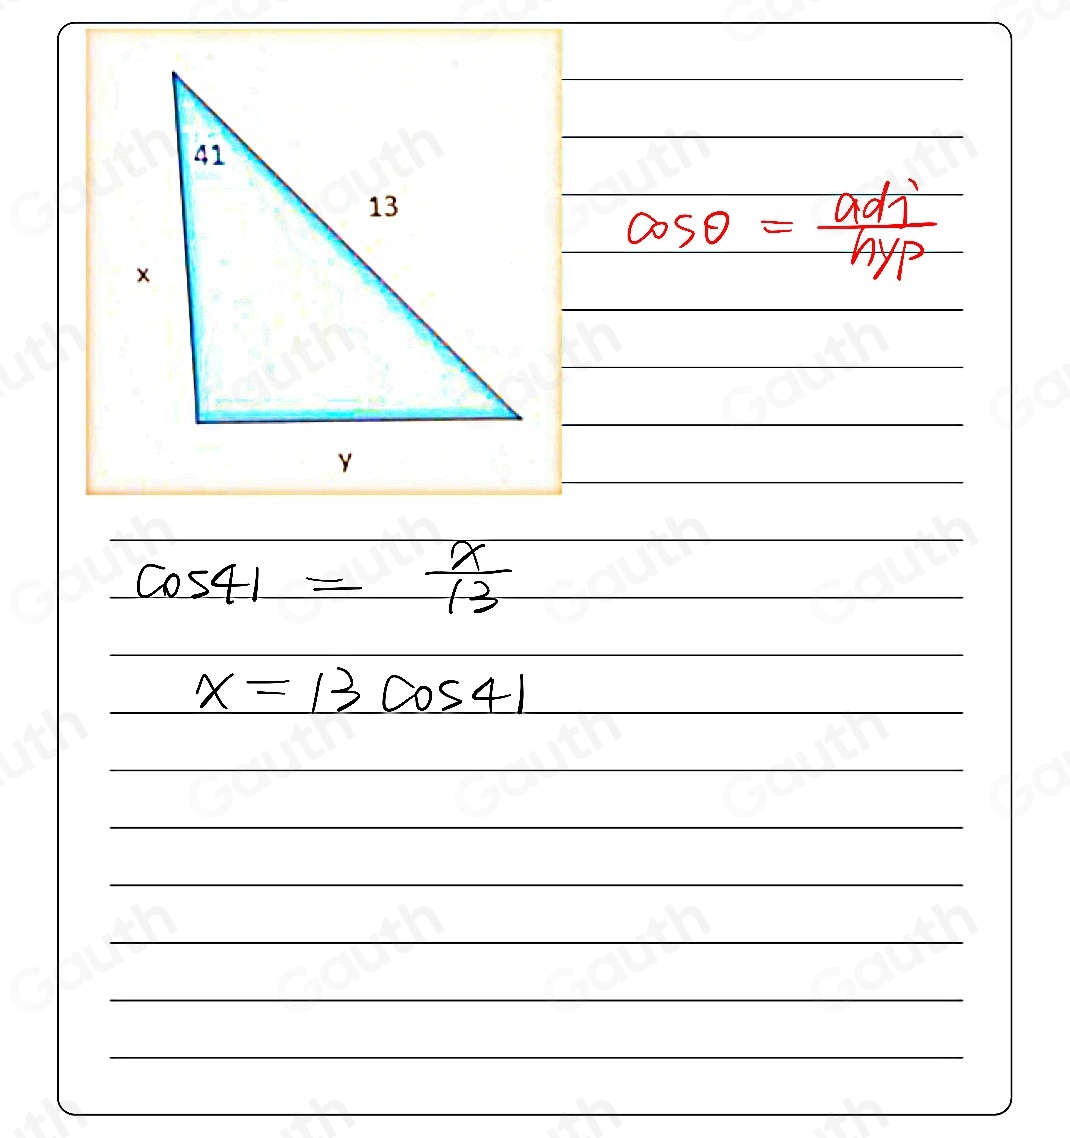 41
13
x
y
cosθ = adj/hyp
cos41 = x/13
x = 13 cos41
Gauth